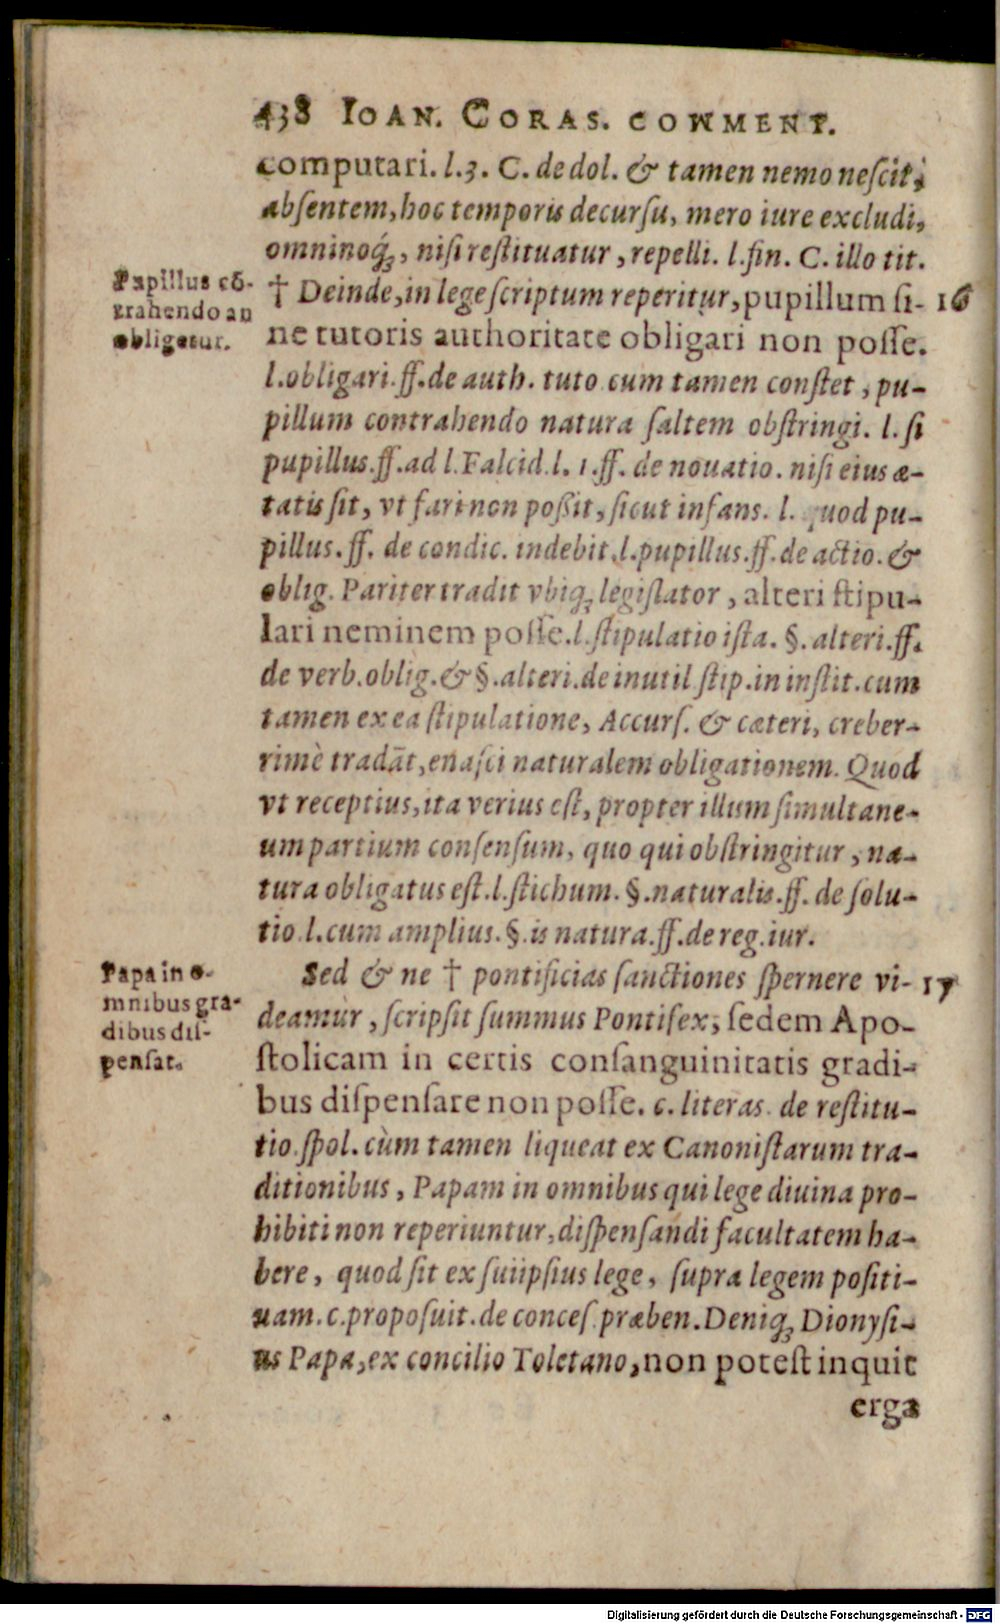 438 IOAN. CORAS. COMMENT.
computari. l.3. C. de dol. & tamen nemo neſcit,
abſentem, hoc temporis decurſu, mero iure excludi,
omninoq́ꝫ, niſi reſtituatur, repelli. l.fin. C. illo tit.
Pupillus cō-
trahendo an
obligetur.
† Deinde, in lege ſcriptum reperitur, pupillum ſi- 16
ne tutoris authoritate obligari non poſſe.
l.obligari.ff.de auth. tuto cum tamen conſtet, pu-
pillum contrahendo natura ſaltem obſtringi. l. ſi
pupillus.ff.ad l.Falcid.l. 1.ff. de nouatio. niſi eius æ-
tatis ſit, vt fari non poßit, ſicut infans. l. quod pu-
pillus. ff. de condic. indebit.l.pupillus.ff.de actio. &
oblig. Pariter tradit vbiqꝫ legiſlator, alteri ſtipu-
lari neminem poſſe.l.ſtipulatio iſta. §. alteri.ff.
de verb.oblig.&§.alteri.de inutil ſtip.in inſtit.cum
tamen ex ea ſtipulatione, Accurſ. & cæteri, creber-
rimè tradāt, enaſci naturalem obligationem. Quod
vt receptius, ita verius eſt, propter illum ſimultane-
um partium conſenſum, quo qui obſtringitur, na-
tura obligatus eſt.l.ſtichum. §.naturalis.ff. de ſolu-
tio.l.cum amplius.§.is natura.ff.de reg.iur.
Papa in o-
mnibus gra-
dibus diſ-
penſat.
Sed & ne † pontificias ſanctiones ſpernere vi- 17
deamur, ſcripſit ſummus Pontifex, ſedem Apo-
ſtolicam in certis conſanguinitatis gradi-
bus diſpenſare non poſſe. c. literas. de reſtitu-
tio.ſpol. cùm tamen liqueat ex Canoniſtarum tra-
ditionibus, Papam in omnibus qui lege diuina pro-
hibiti non reperiuntur, diſpenſandi facultatem ha-
bere, quod ſit ex ſuiipſius lege, ſupra legem poſiti-
uam. c.propoſuit.de conceſ.præben.Deniqꝫ Dionyſi-
us Papa, ex concilio Toletano, non poteſt inquit
erga
Digitalisierung gefördert durch die Deutsche Forschungsgemeinschaft - DFG